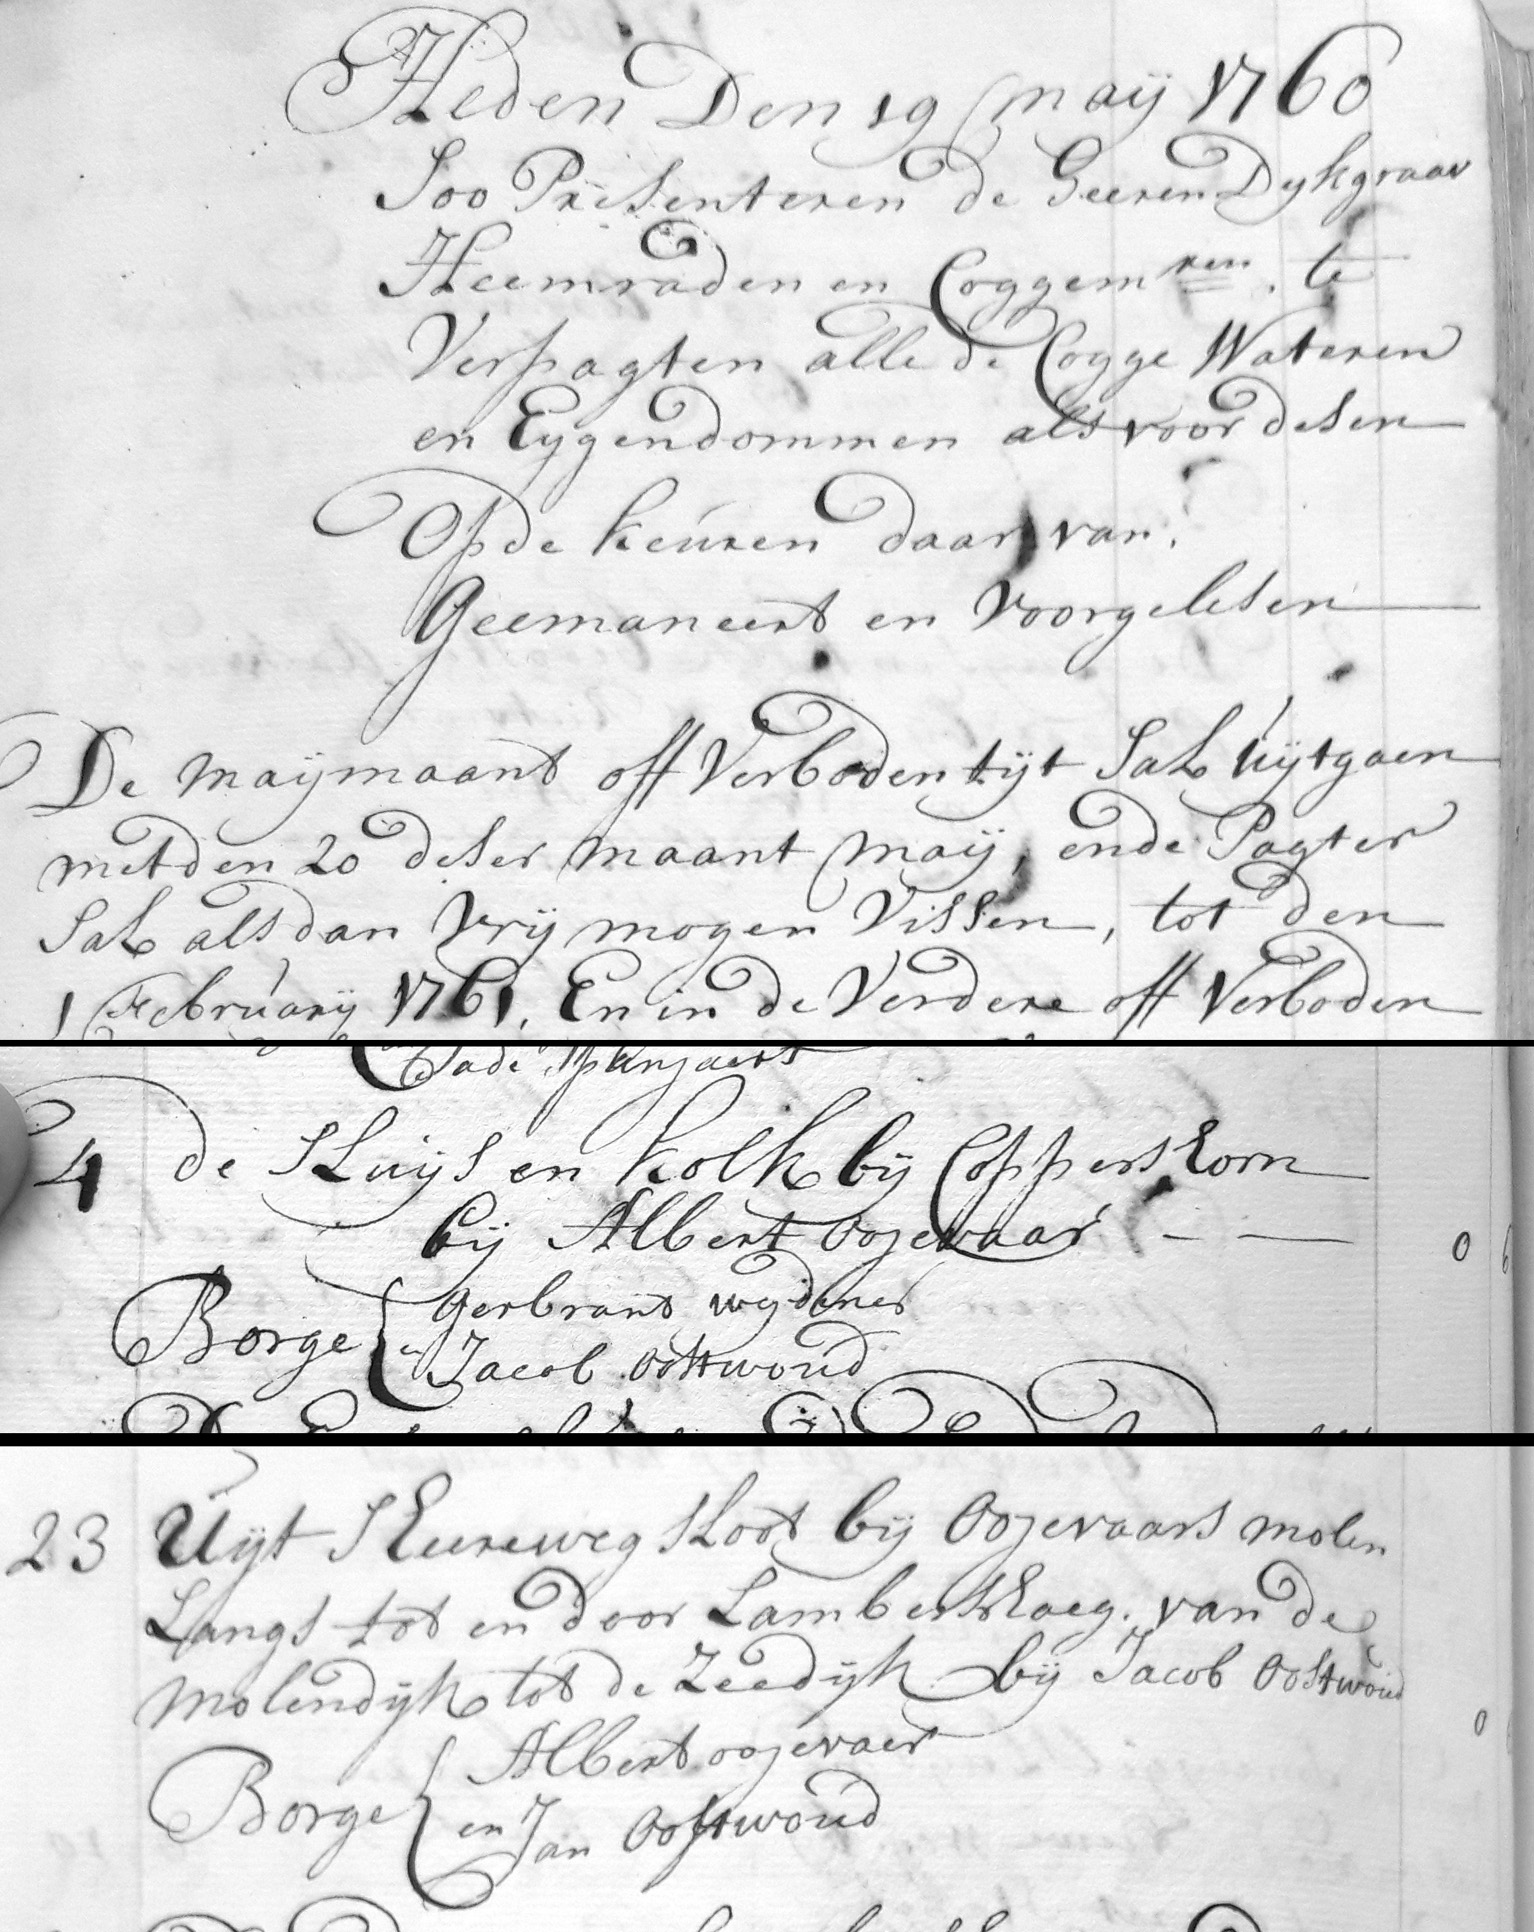 Heden Den 19 maij 1760
Soo Presenteren de Heeren Dykgraav
Heemraden en Coggemren. te
Verpagten alle de Cogge Wateren
en Eygendommen als voor desen
Op de keuren daar van
Geemaneert en Voorgelesen
De maijmaant off Verboden tijt Sal úijtgaen
met den 20 deser maant maij, ende Pagter
Sal als dan Vrij mogen Vissen, tot den
1 Februarij 1761, En in de Verdere off Verboden
4 de Sluijs en kolk bij Coppershorn
bij Albert oojevaar
0
Borge Gerbrant wydenes
en Jacob oostwoud
23 Uijt Sheereweg Sloot bij Oojevaars molen
Langs tot en door Lamberts haeg. van de
molendijk tot de Zeedijk bij Jacob Oostwoud
0
Borge Albert oojevaer
en Jan Oostwoud